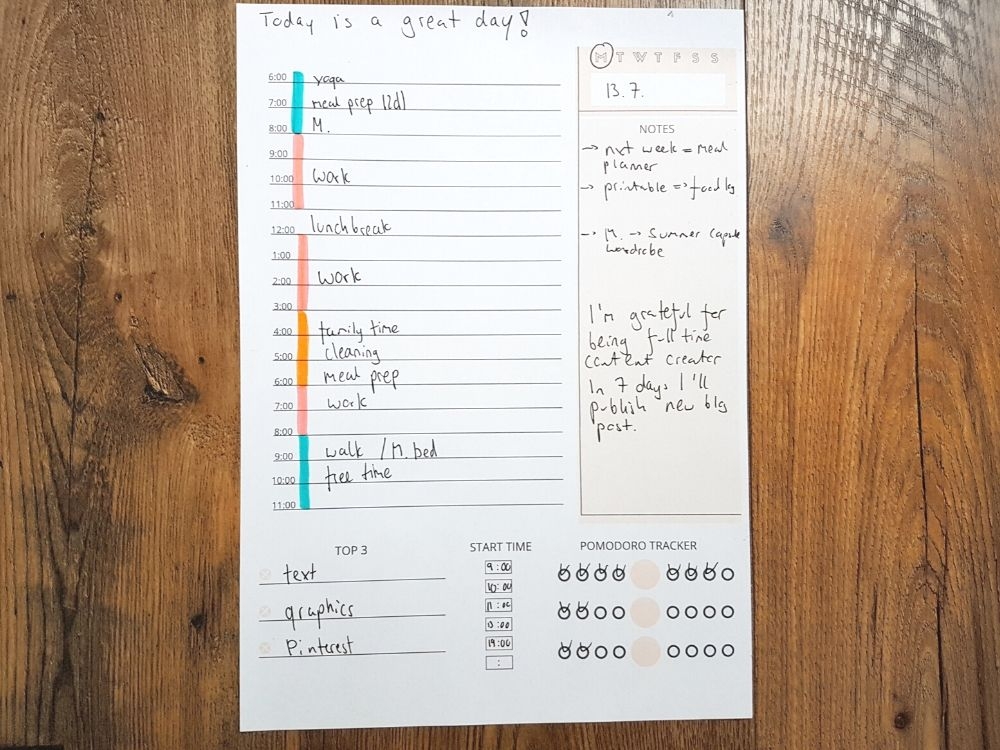 Today is a great day!
6:00 yoga
7:00 meal prep (2d)
8:00 M.
9:00
10:00 work
11:00
12:00 lunchbreak
1:00
2:00 work
3:00
4:00 family time
5:00 cleaning
6:00 meal prep
7:00 work
8:00
9:00 walk / M. bed
10:00 free time
11:00
M T W T F S S
13.7.
NOTES
→ nxt week = meal
planner
→ printable => food log
→ M. → Summer capsule
wardrobe
I'm grateful for
being full time
content creator
In 7 days I'll
publish new blg
post.
TOP 3
text
graphics
Pinterest
START TIME
9:00
10:00
11:00
13:00
19:00
:
POMODORO TRACKER